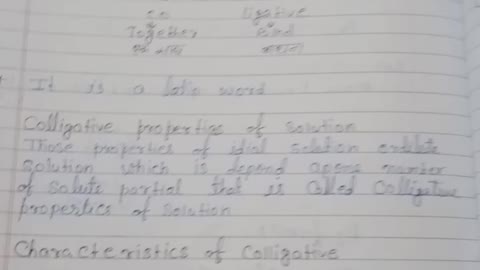 co ligative
Together Bind
एक साथ बांधना
It is a latin word
Colligative properties of solution
Those properties of idial solution and dilute
solution which is depend apons number
of solute partial that is called colligative
properties of solution
Characteristics of Colligative